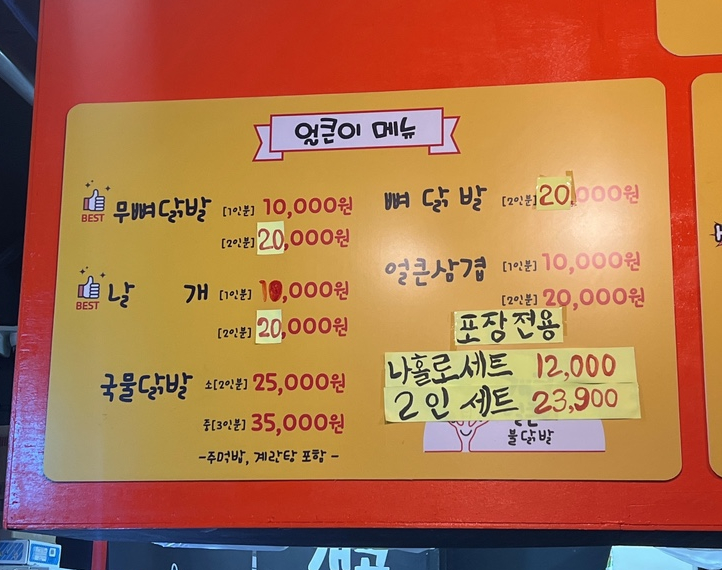 얼큰이 메뉴
BEST
무뼈닭발 [1인분] 10,000원
[2인분] 20,000원
BEST
날개 [1인분] 10,000원
[2인분] 20,000원
국물닭발 소[2인분] 25,000원
중[3인분] 35,000원
-주먹밥, 계란탕 포함-
뼈닭발 [2인분] 20,000원
얼큰삼겹 [1인분] 10,000원
[2인분] 20,000원
포장전용
나홀로세트 12,000
2인 세트 23,900
불닭발